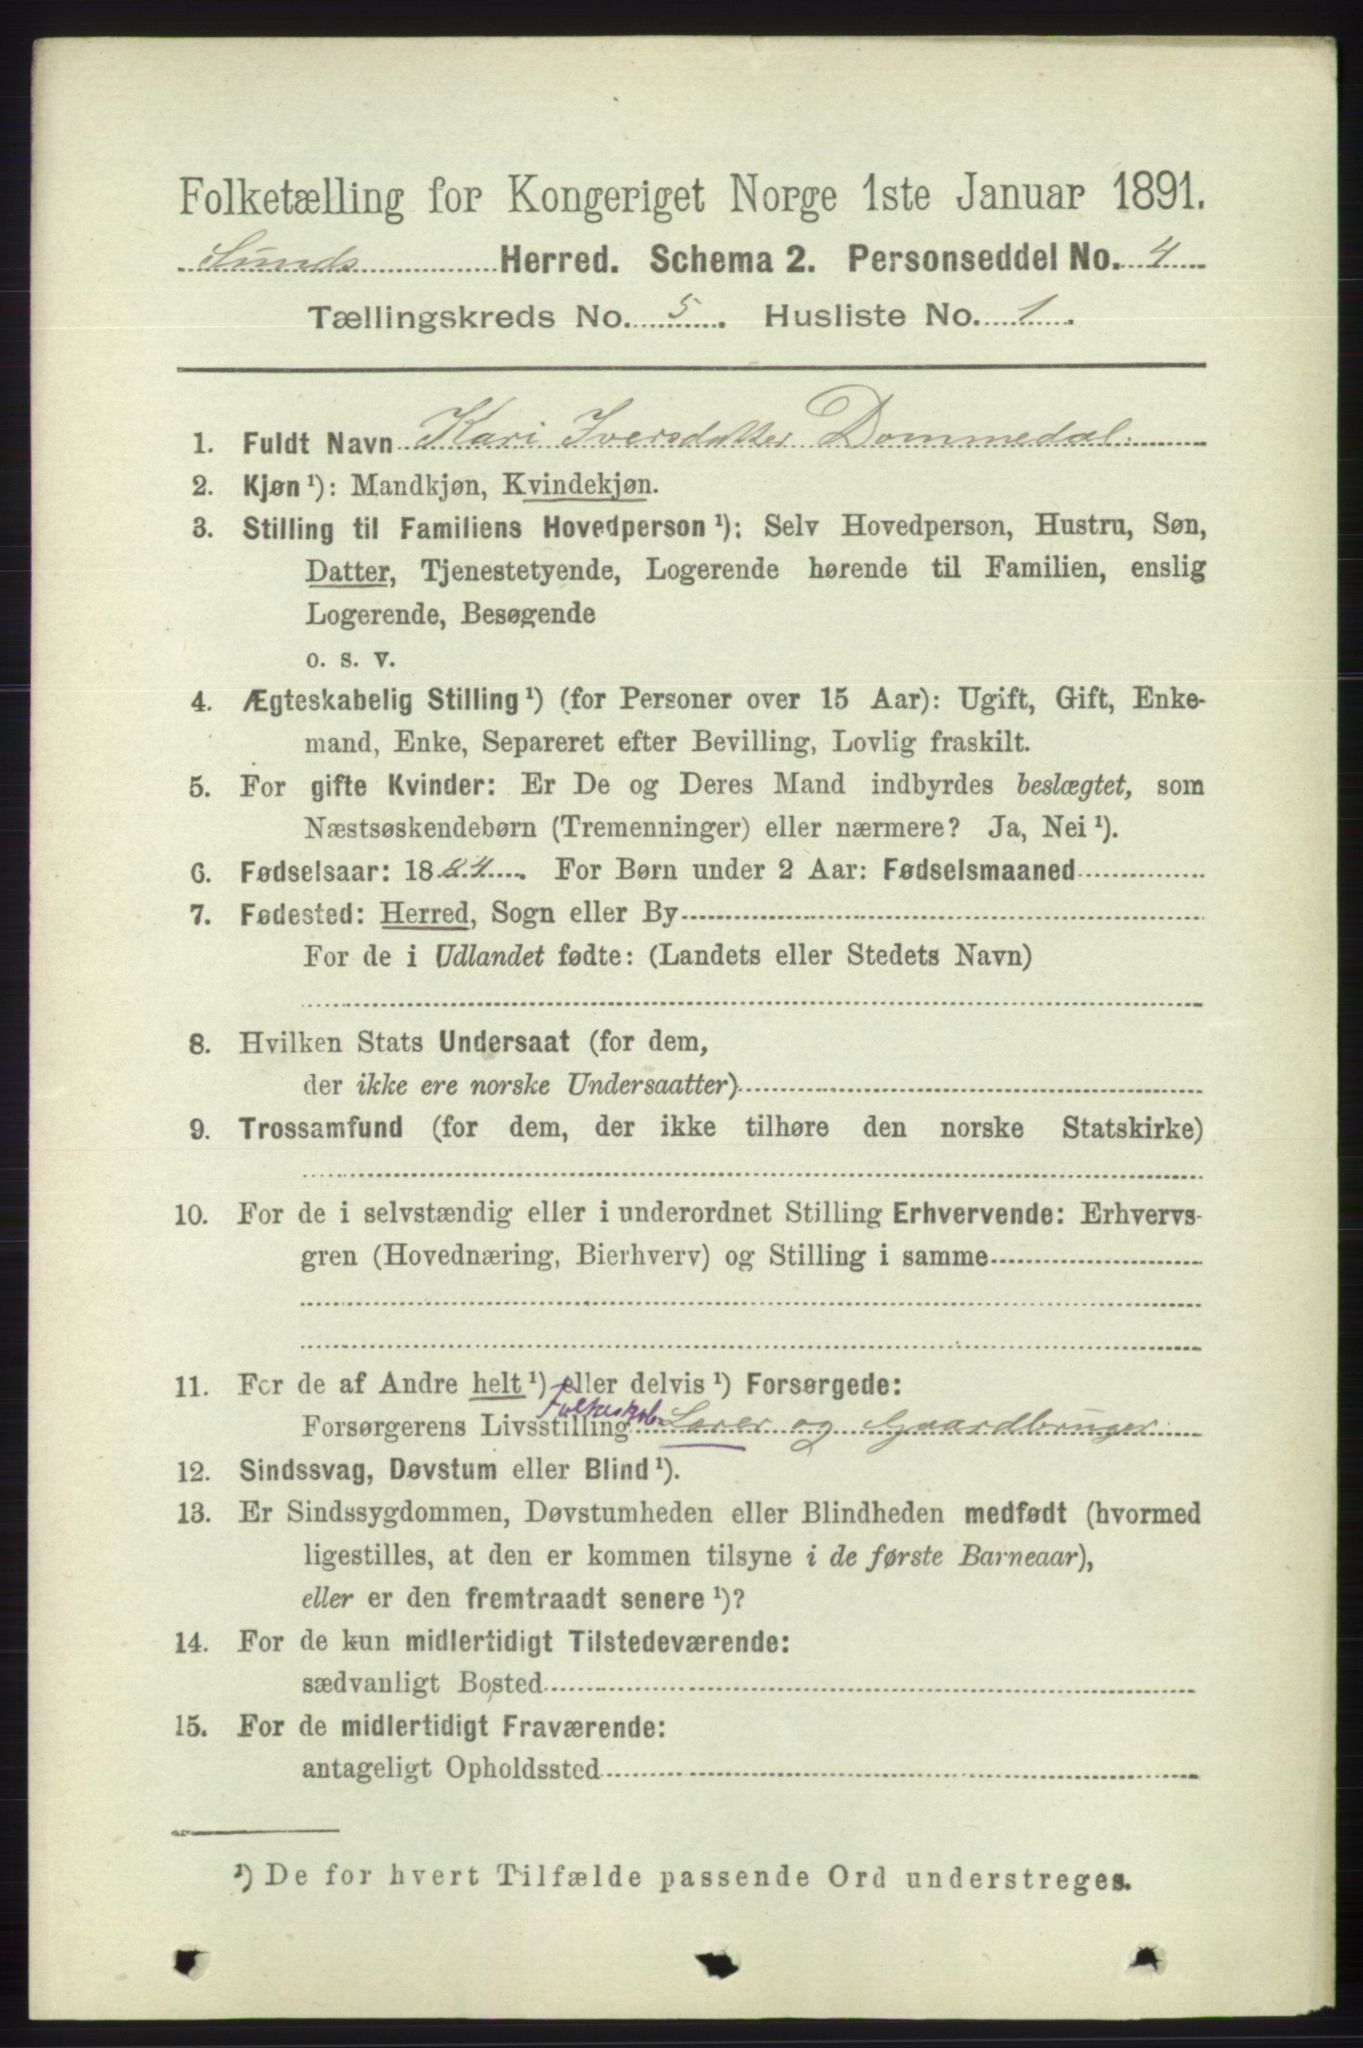 Folketælling for Kongeriget Norge 1ste Januar 1891.
Sunds Herred. Schema 2. Personseddel No. 4
Tællingskreds No. 5. Husliste No. 1.
1. Fuldt Navn Kari Iversdatter Dommedal.
2. Kjøn ¹): Mandkjøn, Kvindekjøn.
3. Stilling til Familiens Hovedperson ¹): Selv Hovedperson, Hustru, Søn,
Datter, Tjenestetyende, Logerende hørende til Familien, enslig
Logerende, Besøgende
o. s. v.
4. Ægteskabelig Stilling ¹) (for Personer over 15 Aar): Ugift, Gift, Enke-
mand, Enke, Separeret efter Bevilling, Lovlig fraskilt.
5. For gifte Kvinder: Er De og Deres Mand indbyrdes beslægtet, som
Næstsøskendebørn (Tremenninger) eller nærmere? Ja, Nei ¹).
6. Fødselsaar: 1884. For Børn under 2 Aar: Fødselsmaaned
7. Fødested: Herred, Sogn eller By
For de i Udlandet fødte: (Landets eller Stedets Navn)
8. Hvilken Stats Undersaat (for dem,
der ikke ere norske Undersaatter)
9. Trossamfund (for dem, der ikke tilhøre den norske Statskirke)
10. For de i selvstændig eller i underordnet Stilling Erhvervende: Erhvervs-
gren (Hovednæring, Bierhverv) og Stilling i samme
11. For de af Andre helt ¹) eller delvis ¹) Forsørgede:
Folkeskole
Forsørgerens Livsstilling Lærer og Gaardbruger.
12. Sindssvag, Døvstum eller Blind ¹).
13. Er Sindssygdommen, Døvstumheden eller Blindheden medfødt (hvormed
ligestilles, at den er kommen tilsyne i de første Barneaar),
eller er den fremtraadt senere ¹)?
14. For de kun midlertidigt Tilstedeværende:
sædvanligt Bosted
15. For de midlertidigt Fraværende:
antageligt Opholdssted
¹) De for hvert Tilfælde passende Ord understreges.